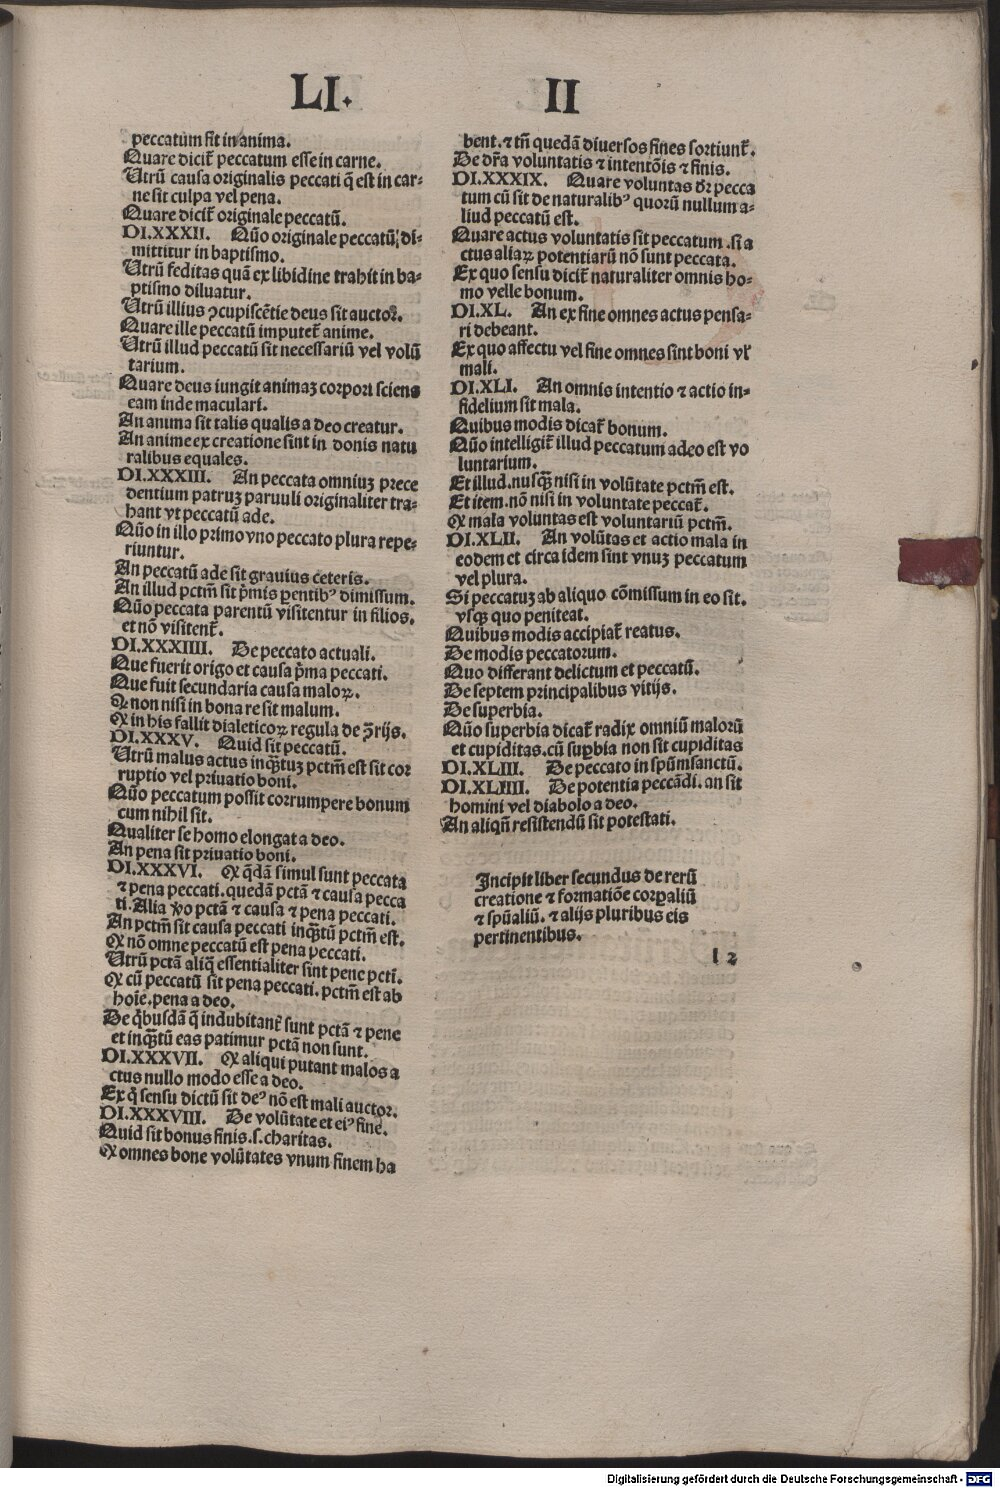 LI. II
peccatum sit in anima.
Quare dicit̃ peccatum esse in carne.
Utrũ causa originalis peccati q̃ est in car⸗
ne sit culpa vel pena.
Quare dicit̃ originale peccatũ.
DI.XXXII. Qũo originale peccatũ di⸗
mittitur in baptismo.
Utrũ feditas quã ex libidine trahit in ba⸗
ptismo diluatur.
Utrũ illius ꝯcupiscẽtie deus sit auctoꝝ.
Quare ille peccatũ imputet̃ anime.
Utrũ illud peccatũ sit necessariũ vel volũ
tarium.
Quare deus iungit animaꝫ corpori sciens
eam inde maculari.
An anima sit talis qualis a deo creatur.
An anime ex creatione sint in donis natu
ralibus equales.
DI.XXXIII. An peccata omniuꝫ prece
dentium patruꝫ paruuli originaliter tra⸗
hant vt peccatũ ade.
Qũo in illo primo vno peccato plura repe⸗
riuntur.
An peccatũ ade sit grauius ceteris.
An illud pctm̃ sit p̃mis ꝑentibꝰ dimissum.
Qũo peccata parentũ visitentur in filios.
et nõ visitent̃.
DI.XXXIIII. De peccato actuali.
Que fuerit origo et causa p̃ma peccati.
Que fuit secundaria causa maloꝝ.
Ꝙ non nisi in bona re sit malum.
Ꝙ in his fallit dialeticoꝝ regula de ꝯ̃rijs.
DI.XXXV. Quid sit peccatũ.
Utrũ malus actus inqꝫ̃tuꝫ pctm̃ est sit cor
ruptio vel priuatio boni.
Qũo peccatum possit corrumpere bonum
cum nihil sit.
Qualiter se homo elongat a deo.
An pena sit priuatio boni.
DI.XXXVI. Ꝙ q̃dã simul sunt peccata
⁊ pena peccati.quedã pctã ⁊ causa pecca
ti.Alia ꝟo pctã ⁊ causa ⁊ pena peccati.
An pctm̃ sit causa peccati inqꝫ̃tũ pctm̃ est.
Ꝙ nõ omne peccatũ est pena peccati.
Utrũ pctã aliq̃ essentialiter sint pene pcti̇̃.
Ꝙ cũ peccatũ sit pena peccati.pctm̃ est ab
hoĩe.pena a deo.
De q̃busdã q̃ indubitant̃ sunt pctã ⁊ pene
et inqꝫ̃tũ eas patimur pctã non sunt.
DI.XXXVII. Ꝙ aliqui putant malos a
ctus nullo modo esse a deo.
Ex q̃ sensu dictũ sit deꝰ nõ est mali auctor.
DI.XXXVIII. De volũtate et eiꝰ fine.
Quid sit bonus finis.s.charitas.
Ꝙ omnes bone volũtates vnum finem ha
bent.⁊ tñ quedã diuersos fines sortiunt̃.
De dr̃a voluntatis ⁊ intentõis ⁊ finis.
DI.XXXIX. Quare voluntas dr̃ pecca
tum cũ sit de naturalibꝰ quorũ nullum a⸗
liud peccatũ est.
Quare actus voluntatis sit peccatum.si a
ctus aliaꝝ potentiarũ nõ sunt peccata.
Ex quo sensu dicit̃ naturaliter omnis ho⸗
mo velle bonum.
DI.XL. An ex fine omnes actus pensa⸗
ri debeant.
Ex quo affectu vel fine omnes sint boni vl̃
mali.
DI.XLI. An omnis intentio ⁊ actio in⸗
fidelium sit mala.
Quibus modis dicat̃ bonum.
Qũo intelligit̃ illud peccatum adeo est vo
luntarium.
Et illud.nusqꝫ̃ nisi in volũtate pctm̃ est.
Et item.nõ nisi in voluntate peccat̃.
Ꝙ mala voluntas est voluntariũ pctm̃.
DI.XLII. An volũtas et actio mala in
eodem et circa idem sint vnuꝫ peccatum
vel plura.
Si peccatuꝫ ab aliquo cõmissum in eo sit.
vsqꝫ quo peniteat.
Quibus modis accipiat̃ reatus.
De modis peccatorum.
Quo differant delictum et peccatũ.
De septem principalibus vitijs.
De superbia.
Qũo superbia dicat̃ radix omniũ malorũ
et cupiditas.cũ suꝑbia non sit cupiditas
DI.XLIII. De peccato in spũmsanctũ.
DI.XLIIII. De potentia peccãdi.an sit
homini vel diabolo a deo.
An aliqñ resistendũ sit potestati.
Incipit liber secundus de rerũ
creatione ⁊ formatiõe corꝑaliũ
⁊ spũaliũ.⁊ alijs pluribus eis
pertinentibus.
l 2
Digitalisierung gefördert durch die Deutsche Forschungsgemeinschaft - DFG